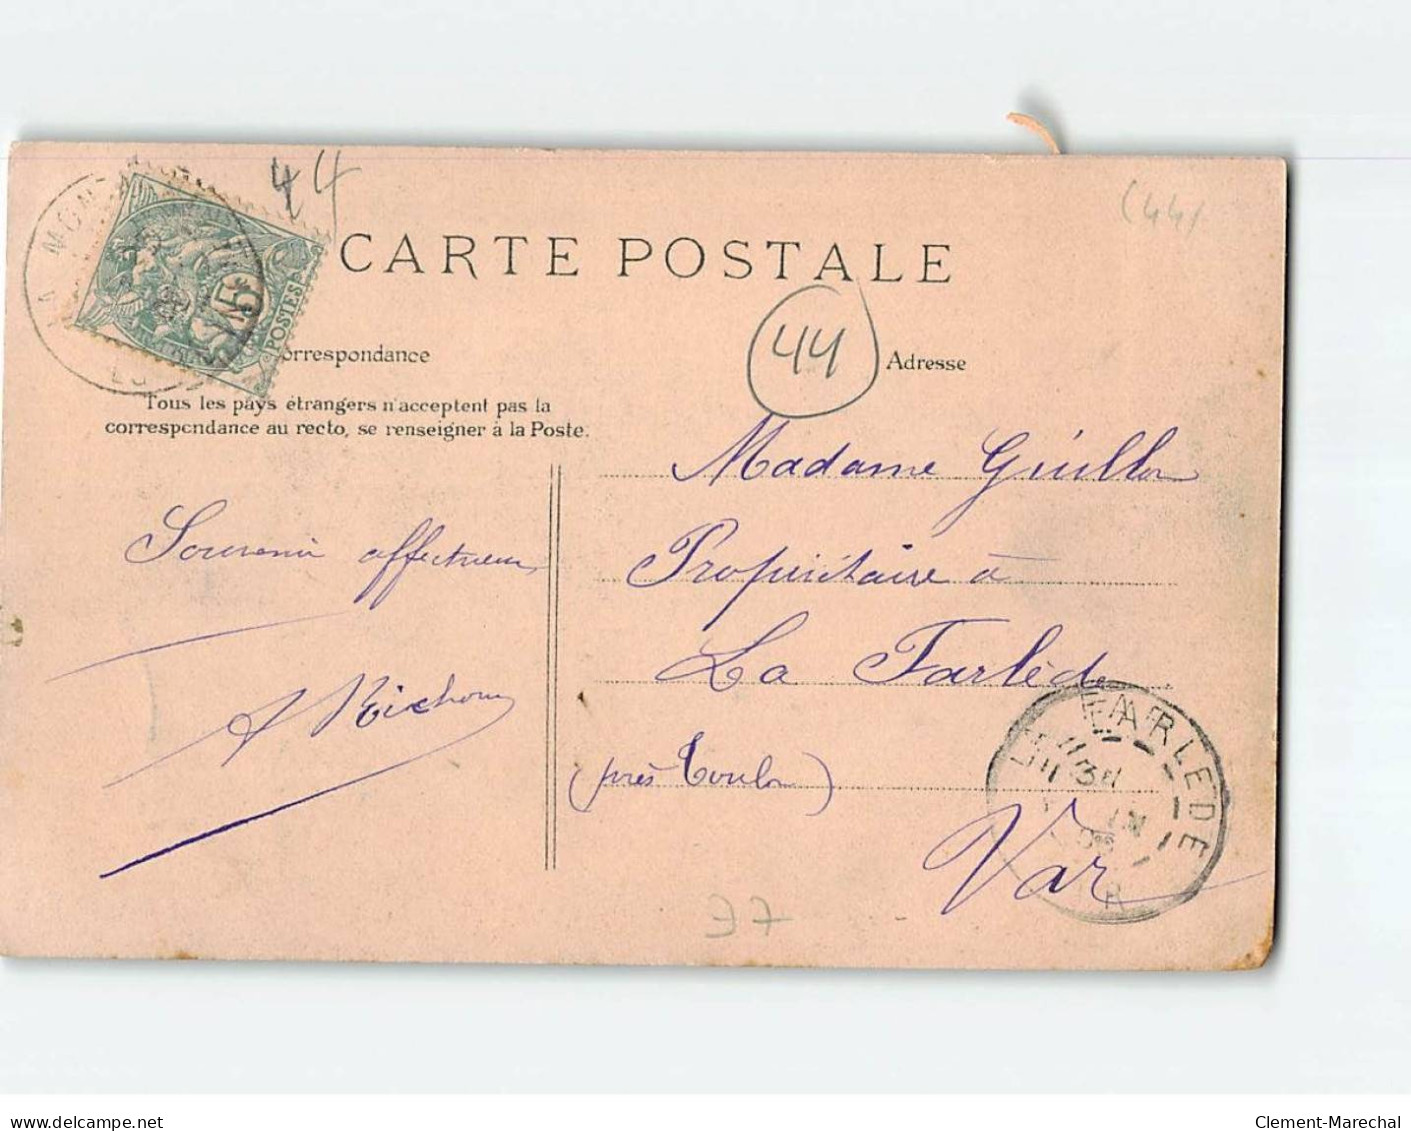 44
(44)
CARTE POSTALE
44
5c
POSTES
orrespondance
Adresse
Tous les pays étrangers n'acceptent pas la
correspondance au recto, se renseigner à la Poste.
Souvenir affectueux
Madame Guillon
Propriétaire à
La Farlède
(près Toulon)
Var
LA FARLEDE
VAR
37
www.delcampe.net
Clement-Marechal